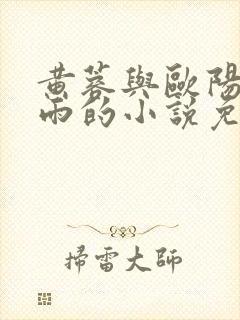 黃蓉與歐陽
雨的小說免
掃雷大師